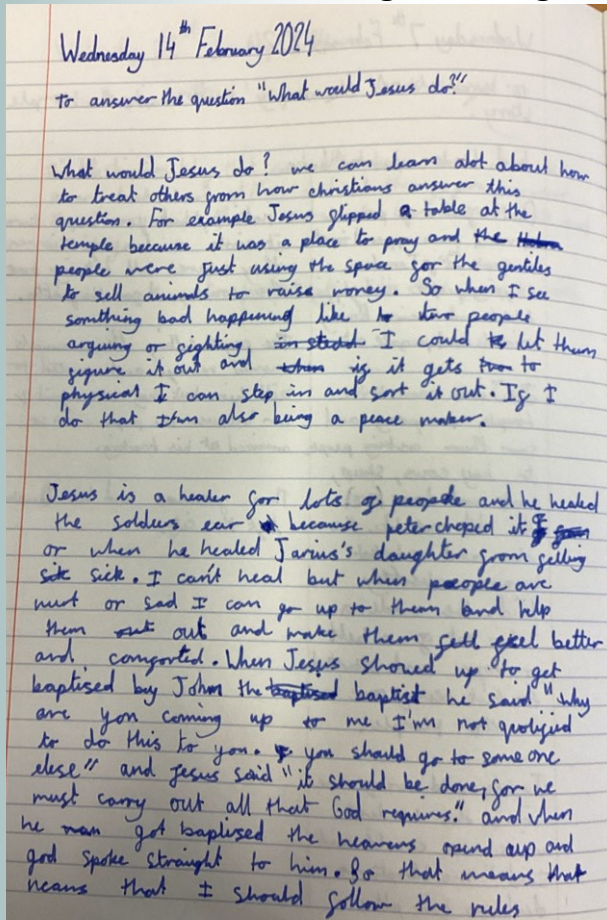 Wednesday 14th February 2024
to answer the question "What would Jesus do?"
What would Jesus do? we can learn alot about how
to treat others from how christians answer this
question. For example Jesus flipped a table at the
temple because it was a place to pray and the
people were just using the space for the gentiles
to sell animals to raise money. So when I see
somthing bad happening like two people
arguing or fighting I could let them
figure it out and if it gets to
physical I can step in and sort it out. If I
do that I'm also being a peace maker.
Jesus is a healer for lots of people and he healed
the soldiers ear because peter choped it
or when he healed Jarius's daughter from getting
sick. I can't heal but when people are
hurt or sad I can go up to them and help
them out and make them feel better
and comforted. When Jesus showed up to get
baptised by John the baptist he said "why
are you coming up to me I'm not qolified
to do this to you. you should go to some one
else" and Jesus said "it should be done, for we
must carry out all that God requires." and when
he got baptised the heavens opend up and
god spoke straight to him. So that means that
means that I should follow the rules